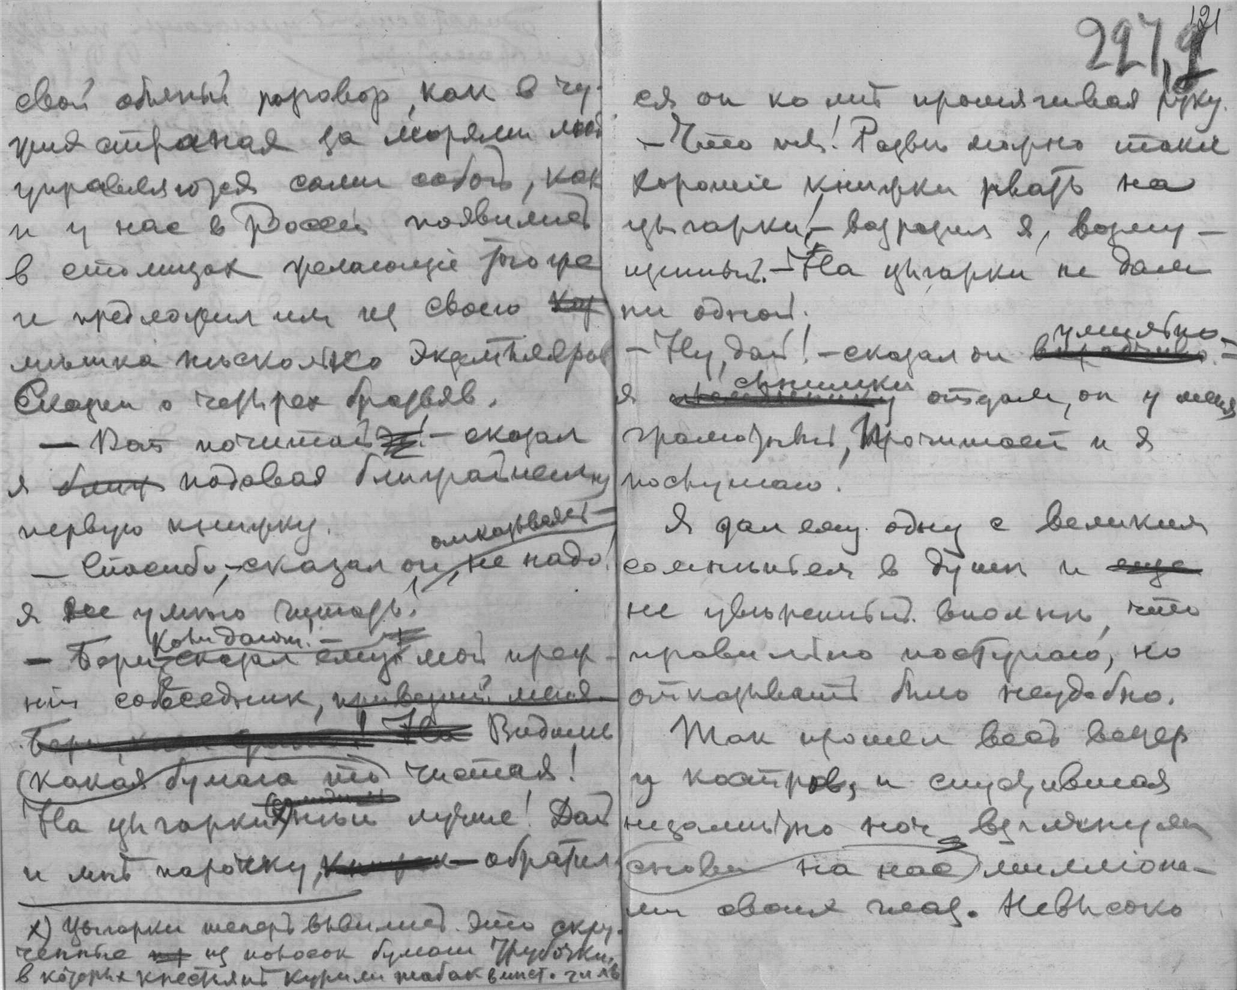 свой обычный разговор, как в чу-
жих странах за морями люди
управляются сами собой, как
и у нас в Россіи появились
в столицах желающіе того же
и предложил им из своего
мѣшка нѣсколько экземпляров
Сказки о четырех братьях.
— Вот почитай! — сказал
я подавая ближайшему
первую книжку.
— Спасибо, — сказал он, отказываясь — не надо!
я не умѣю читать!
— Бери, коли дают! — сказал ему мой преж-
ній собесѣдник, Видишь
какая бумага то чистая!
На цыгарки x) лучше! Дай
и мнѣ парочку, — обратил-
x) Цыгарки теперь вывелись. Это скру-
ченные из полосок бумаги трубочки,
в которых крестьяне курили табак вмѣсто
227,2
121
ся он ко мнѣ протягивая руку.
— Что ты! Развѣ можно такія
хорошіе книжки рвать на
цыгарки, — возразил я, возму-
щенный. — На цыгарки не дам
ни одной!
— Ну, дай! — сказал он умильно —
я сынишкѣ отдам, он у меня
грамотный, Прочитает и я
послушаю.
Я дал ему одну с великим
сомнѣніем в душѣ и
не увѣренный вполнѣ, что
правильно поступаю, но
отказывать было неудобно.
Так прошел весь вечер
у костров, и спустившаяся
незамѣтно ночь взглянула
снова на нас милліона-
ми своих глаз. Невысоко